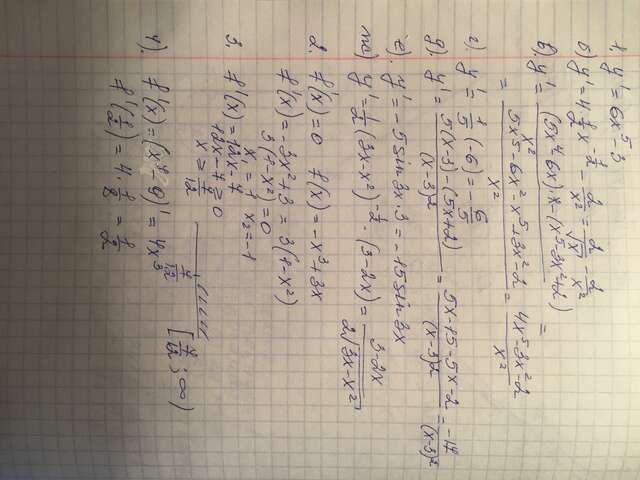 1. y' = 6x⁵ - 3
б) y' = 4 ½ x^(-½) - 2/x² = 2/√x - 2/x²
в) y' = (5x⁴ 6x) · x - (x⁵ - 3x² + 2) / x² =
= 5x⁵ - 6x² - x⁵ + 3x² - 2 / x² = 4x⁵ - 3x² - 2 / x²
г) y' = 1/5 (-6) = -6/5
д) y' = 5(x-3) - (5x+2) / (x-3)² = 5x - 15 - 5x - 2 / (x-3)² = -17 / (x-3)²
е). y' = -5 sin 3x · 3 = -15 sin 3x
ж) y' = ½ (3x - x²)^(-½) · (3 - 2x) = 3 - 2x / 2√(3x - x²)
2. f'(x) = 0 f(x) = -x³ + 3x
f'(x) = -3x² + 3 = 3(1 - x²)
3(1 - x²) = 0
x₁ = 1 x₂ = -1
3. f'(x) = 12x - 7
12x - 7 ≥ 0
x ≥ 7/12
7/12 [7/12 ; ∞)
4). f'(x) = (x⁴ - 6)' = 4x³
f'(½) = 4 · 1/8 = 1/2